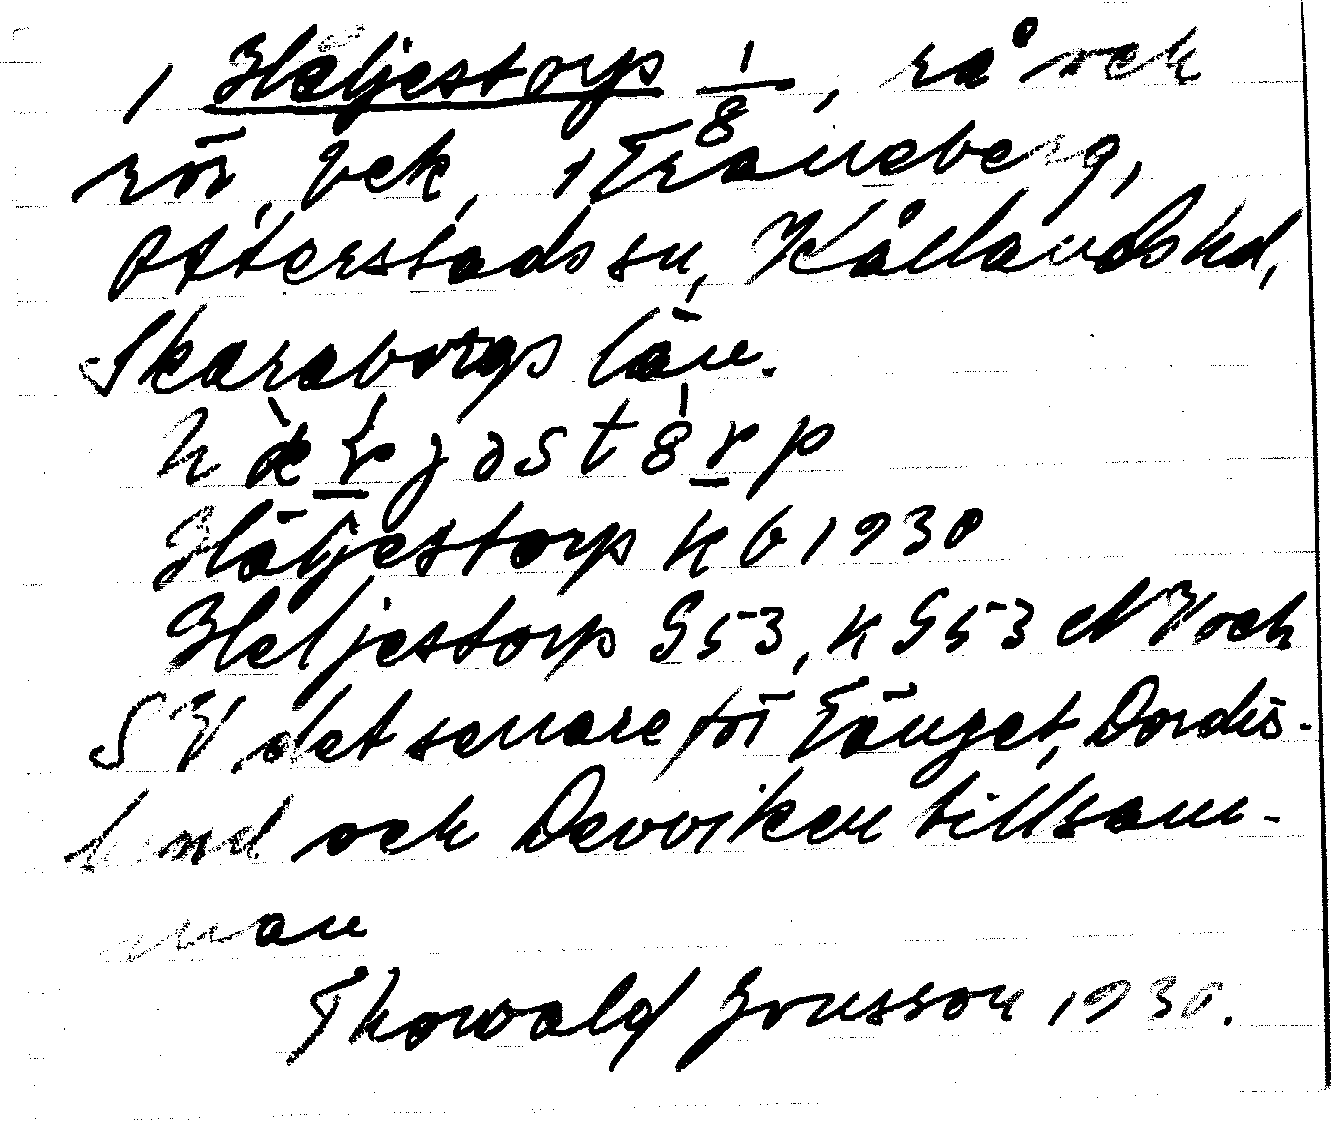 1 Häljestorp 1/8, rå och
rör, bek, 1 Traneberg,
Otterstads sn, Kållands hd,
Skaraborgs län.
Häljestorp kb 1930
Heljestorp G53, k G53 et NV och
SV det senare för Tänget, Dordis-
lund och Devviken tillsam-
man
Thorvald Jonsson 1930.